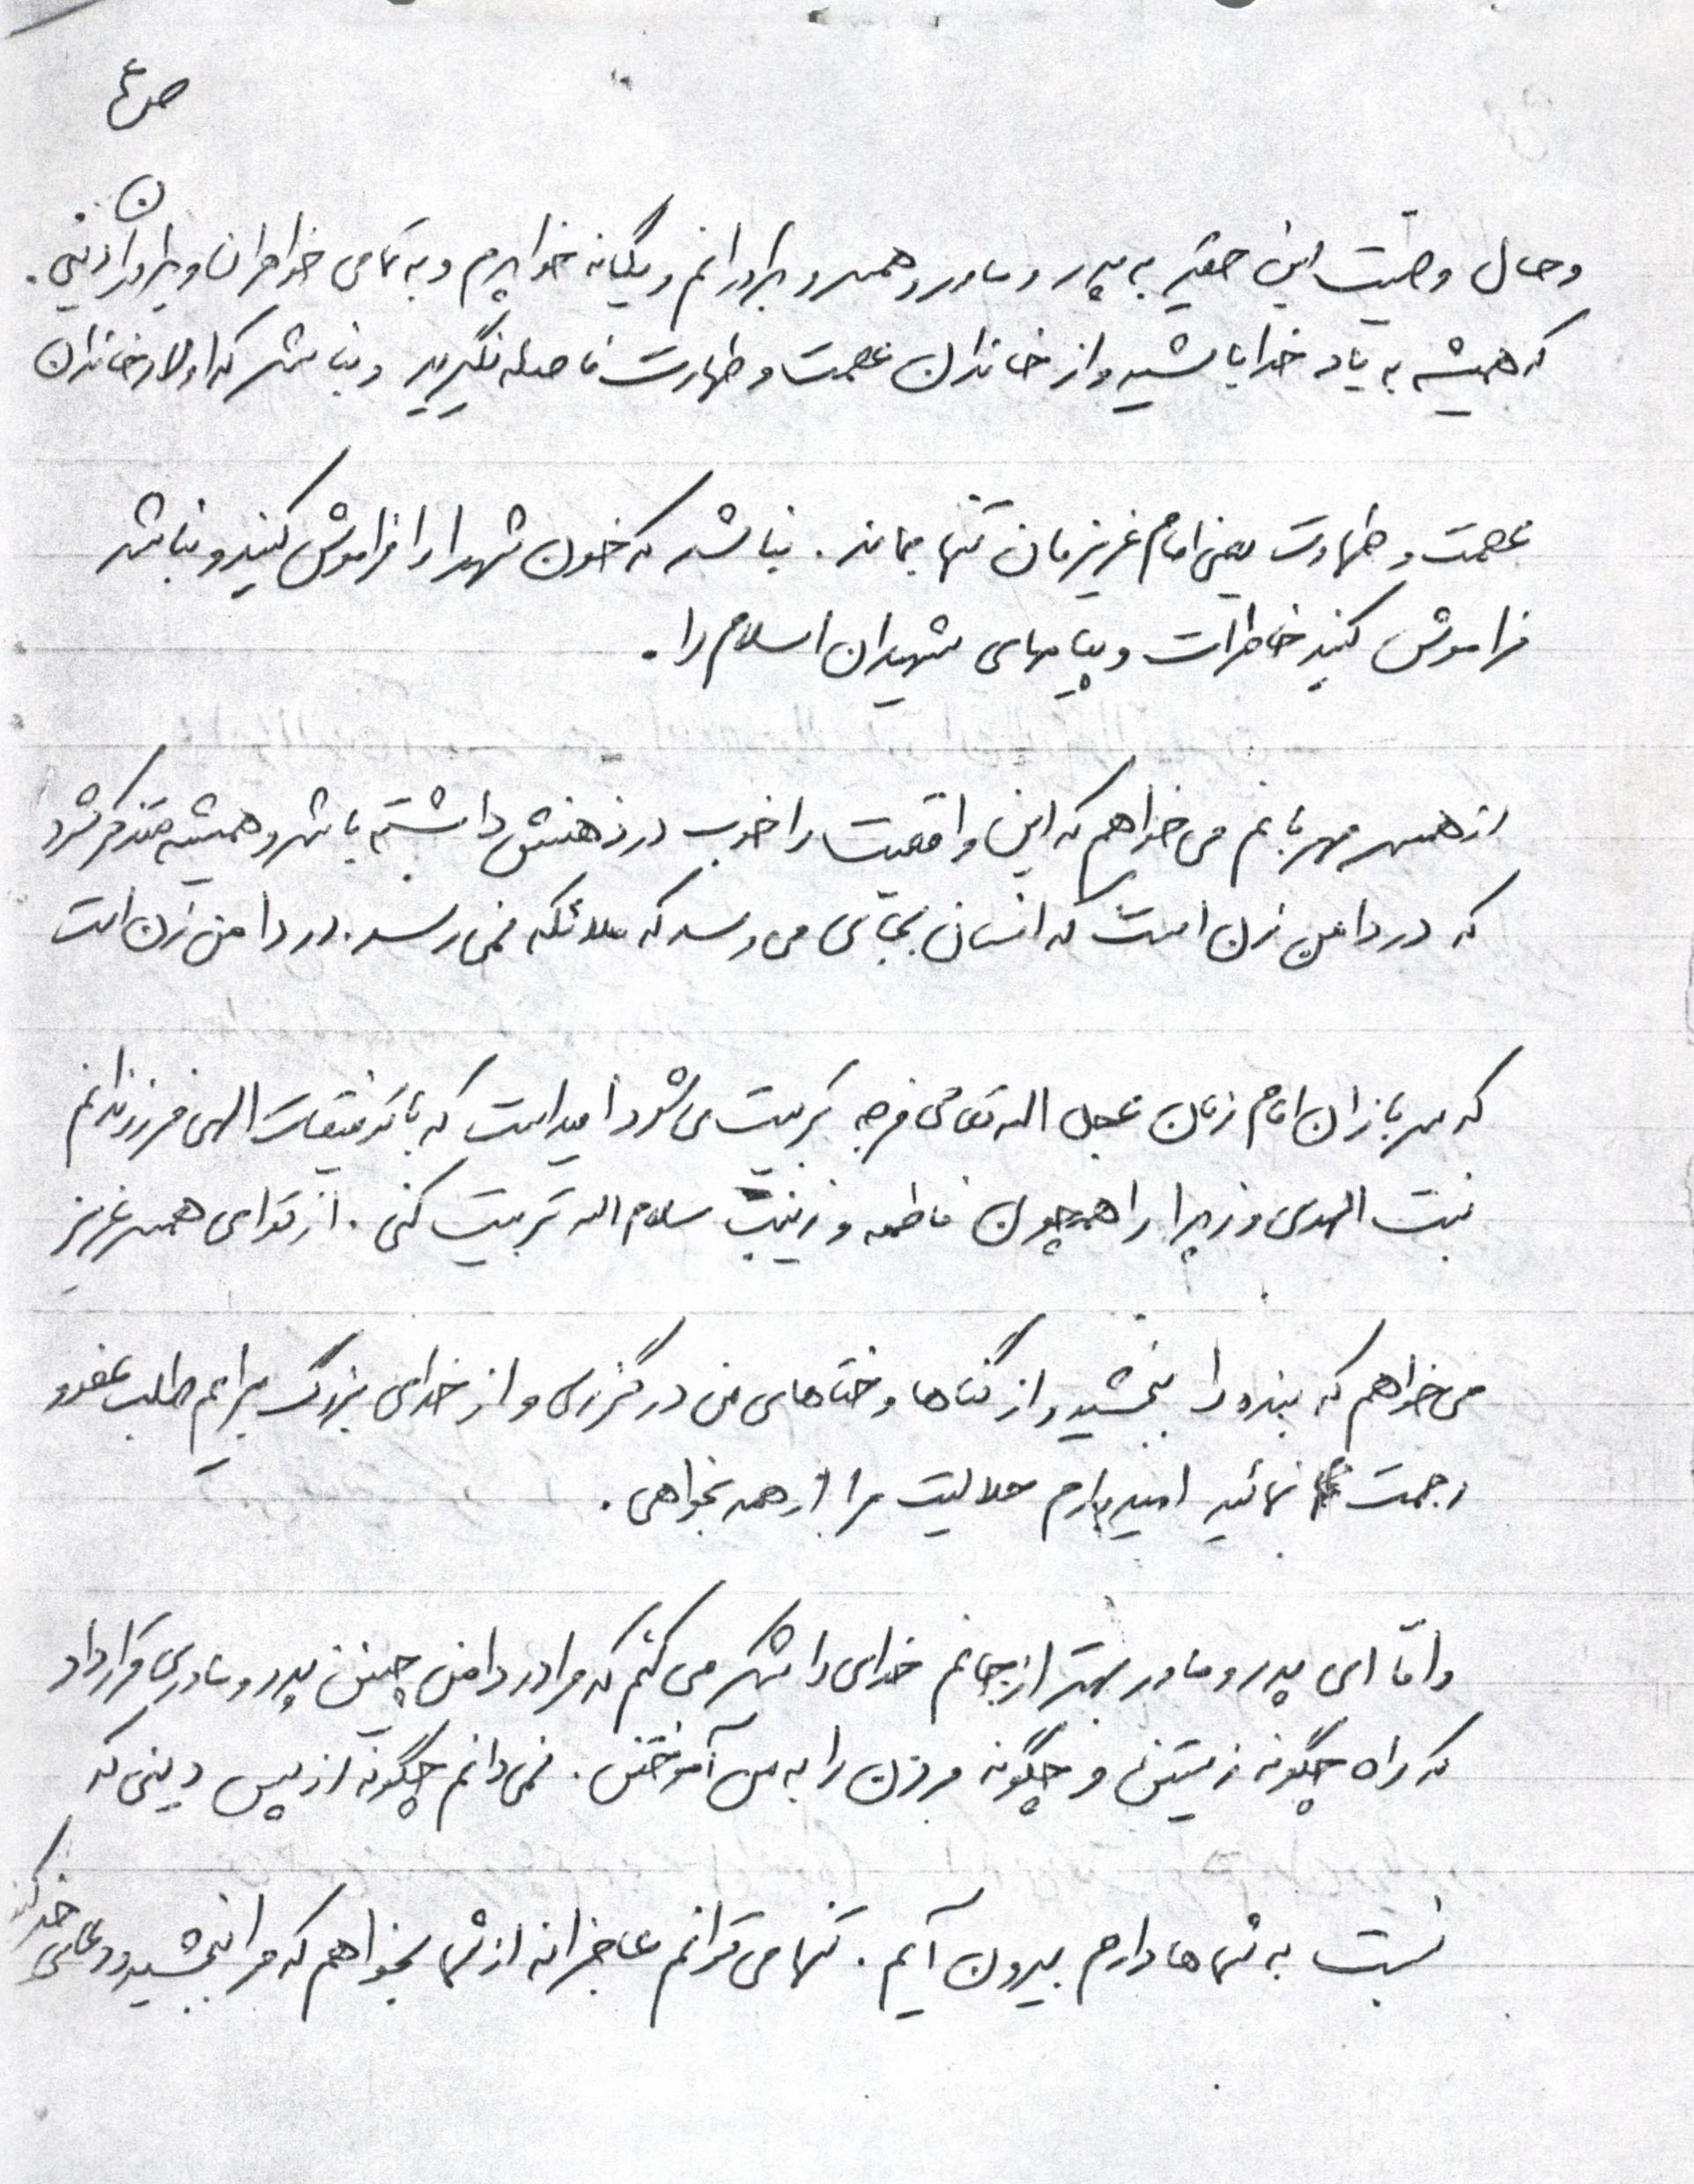 ص ۴
وحال وصیت این حقیر به پدر و مادر و همسر و برادرانم و یگانه خواهرم و به تمامی خواهران و برادران دینی.
که همیشه به یاد خدا باشید و از خاندان عصمت و طهارت فاصله نگیرید و نباشد که اولاد خاندان
عصمت و طهارت یعنی امام عزیزمان تنها بماند. نباشد که خون شهدا را فراموش کنید و نباشد
فراموش کنید خاطرات و پیامهای شهیدان اسلام را.
از همسر مهربانم می خواهم که این واقعیت را خوب در ذهنش داشته باشد و همیشه متذکر شود
که در دامن زن است که انسان بجائی می رسد که ملائکه نمی رسد. در دامن زن است
که سربازان امام زمان عجل اله تعالی فرجه تربیت می شود امید است که با توفیقات الهی فرزندانم
بنت الهدی و زهرا را همچون فاطمه و زینب سلام اله تربیت کنی. از تو ای همسر عزیز
می خواهم که بنده را بخشید و از گناها و ختاهای من در گزری و از خدای بزرگ برایم طلب عفو و
رحمت نمائید امیدوارم حلالیت مرا از همه بخواهی.
و امّا ای پدر و مادر بهتر از جانم خدای را شکر می کنم که مرا در دامن چنین پدر و مادری قرار داد
که راه چگونه زیستن و چگونه مردن را به من آموختن. نمی دانم چگونه از پس دینی که
نسبت به شماها دارم بیرون آیم. تنها می توانم عاجزانه از شما بخواهم که مرا بخشید و دعای خیر کنید